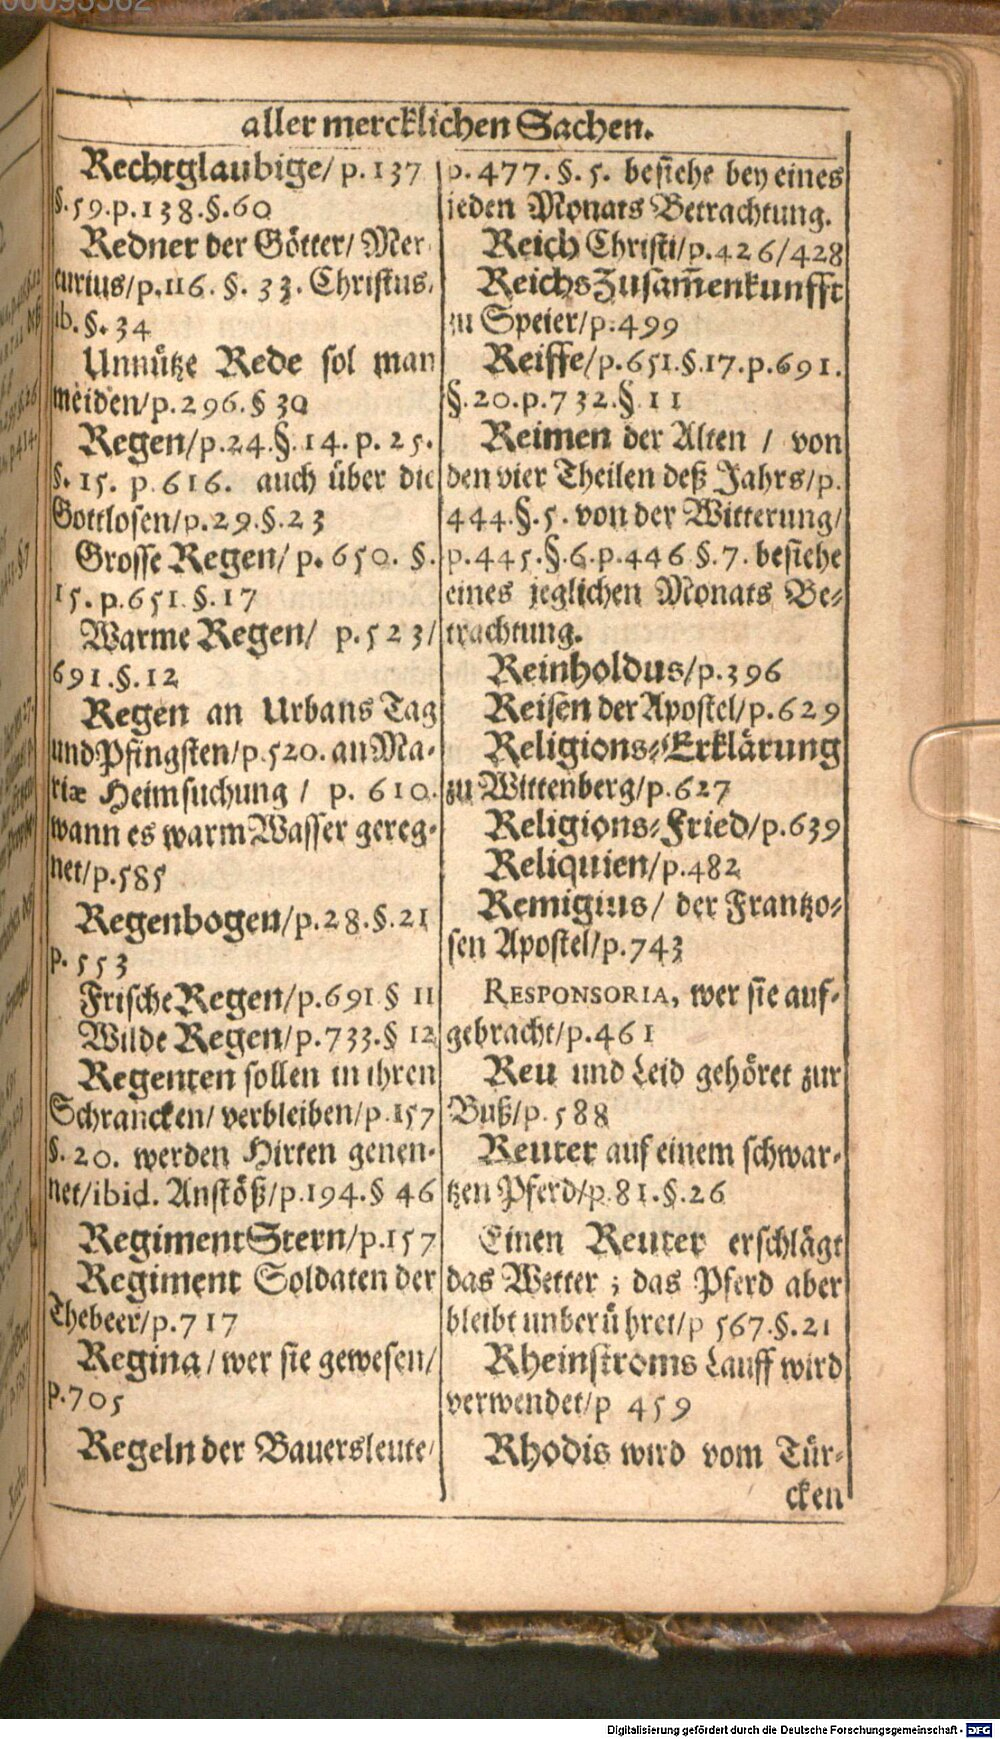 00093562
aller mercklichen Sachen.
Rechtglaubige/ p. 137
§. 59. p. 138. §. 60
Redner der Götter/ Mer-
curius/p. 116. §. 33. Christus,
ib. §. 34
Unnütze Rede sol man
meiden/p. 296. § 30
Regen/p. 24. §. 14. p. 25.
§. 15. p. 616. auch über die
Gottlosen/p. 29. §. 23
Grosse Regen/ p. 650. §.
15. p. 651. §. 17
Warme Regen/ p. 523/
691. §. 12
Regen an Urbans Tag
und Pfingsten/p. 520. an Ma-
riæ Heimsuchung / p. 610.
wann es warm Wasser gereg-
net/p. 585
Regenbogen/p. 28. §. 21
p. 553
Frische Regen/p. 691 § 11
Wilde Regen/p. 733. § 12
Regenten sollen in ihren
Schrancken/ verbleiben/p. 157
§. 20. werden Hirten genen-
net/ibid. Anstöß/p. 194. § 46
Regiment Stern/p. 157
Regiment Soldaten der
Thebeer/p. 717
Regina/wer sie gewesen/
p. 705
Regeln der Bauersleute/
p. 477. §. 5. besiehe bey eines
jeden Monats Betrachtung.
Reich Christi/p. 426/428
Reichs Zusam̄enkunfft
zu Speier/p. 499
Reiffe/p. 651. §. 17. p. 691.
§. 20. p. 732. §. 11
Reimen der Alten / von
den vier Theilen deß Jahrs/p.
444. §. 5. von der Witterung/
p. 445. §. 6. p. 446 §. 7. besiehe
eines jeglichen Monats Be-
trachtung.
Reinholdus/p. 396
Reisen der Apostel/p. 629
Religions-Erklärung
zu Wittenberg/p. 627
Religions-Fried/p. 639
Reliquien/p. 482
Remigius/ der Frantzo-
sen Apostel/p. 743
RESPONSORIA, wer sie auf-
gebracht/p. 461
Reu und Leid gehöret zur
Buß/p. 588
Reuter auf einem schwar-
tzen Pferd/p. 81. §. 26
Einen Reuter erschlägt
das Wetter ; das Pferd aber
bleibt unberühret/p 567. §. 21
Rheinstroms Lauff wird
verwendet/p 459
Rhodis wird vom Tür-
cken
Digitalisierung gefördert durch die Deutsche Forschungsgemeinschaft - DFG